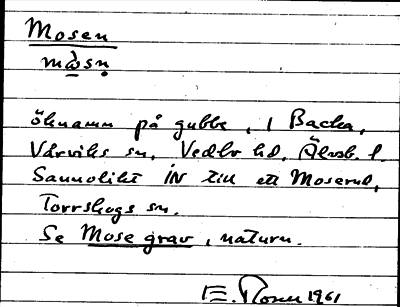 Mosen
mɷ̀sn̥
öknamn på gubbe, i Backa,
Vårviks sn, Vedbo hd, Älvsb. l.
Sannolikt IN till ett Moserud,
Torrskogs sn.
Se Mose grav, naturn.
E. Rosen 1961